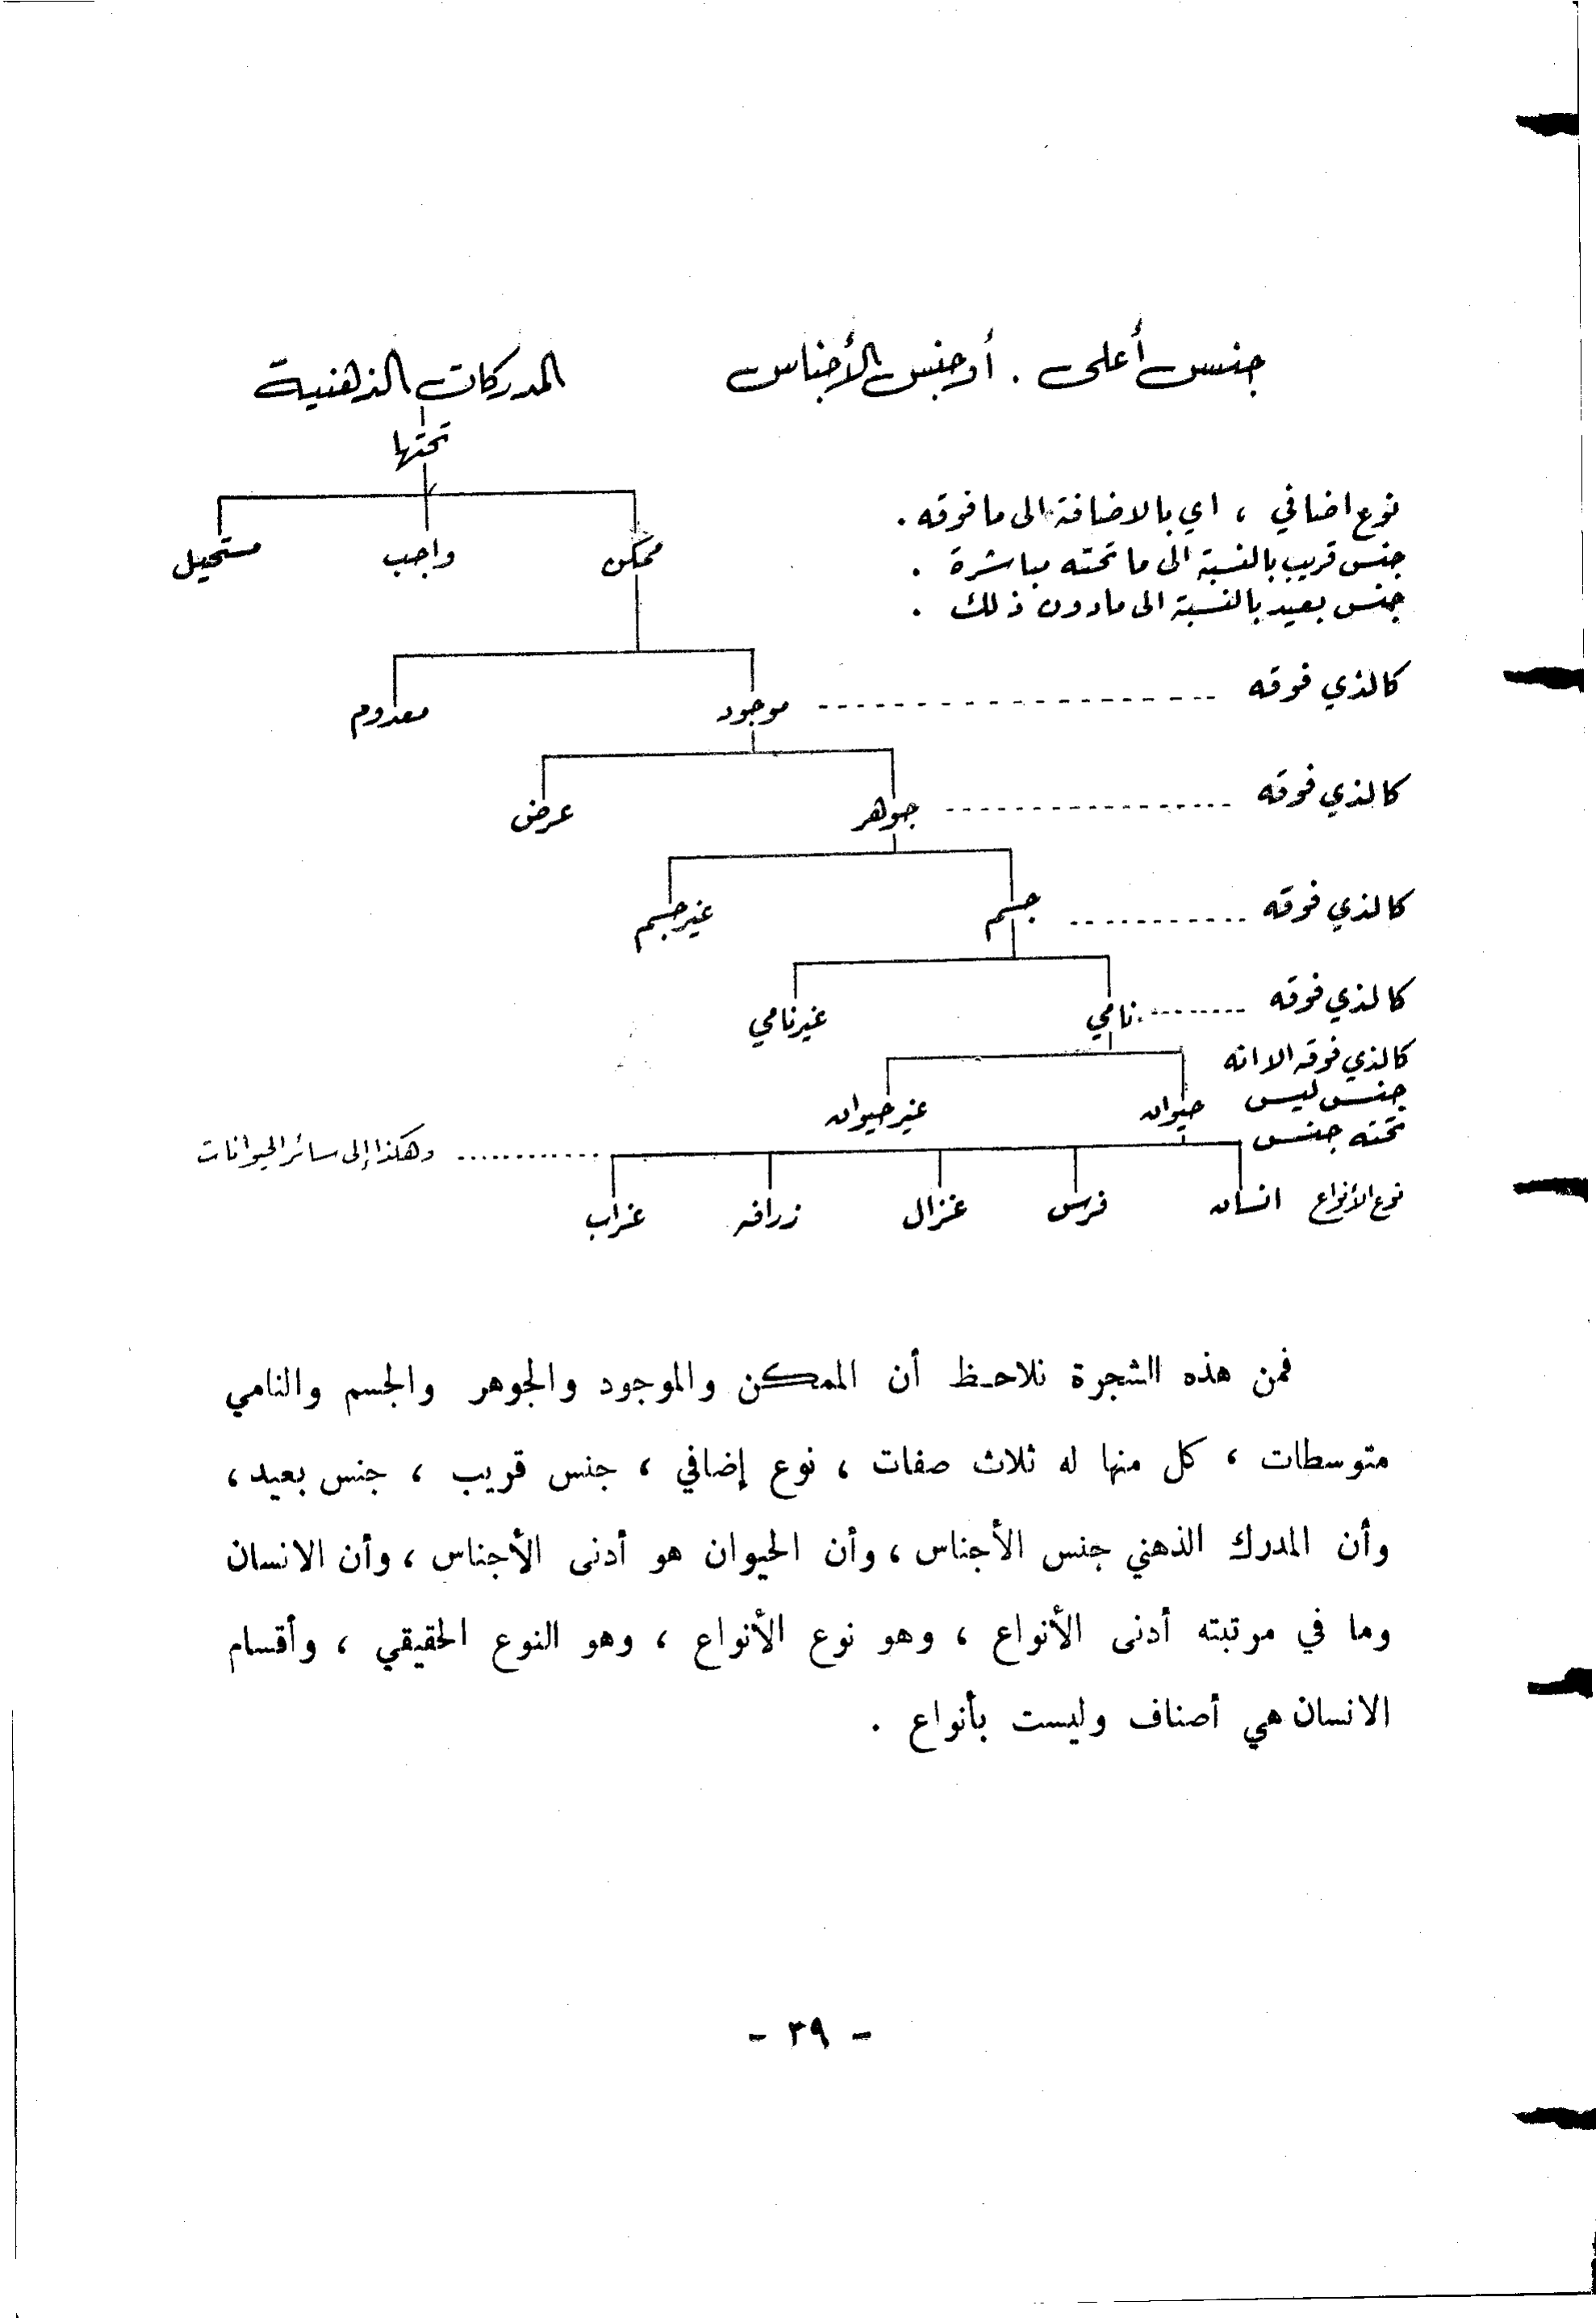 جنس أعلى . أو جنس الأجناس المدركات الذهنية
تحتها
نوع اضافي ، اي بالاضافة الى ما فوقه .
ممكن واجب مستحيل
جنس قريب بالنسبة الى ما تحته مباشرة .
جنس بعيد بالنسبة الى مادون ذلك .
كالذي فوقه -------------------- موجود معدوم
كالذي فوقه ----------------- جوهر عرض
كالذي فوقه ........... جسم غير جسم
كالذي فوقه ........ نامي غير نامي
كالذي فوقه الا انه
جنس ليس
تحته جنس
حيوان غير حيوان
............ وهكذا إلى سائر الحيوانات
نوع الأنواع انسان فرس غزال زرافه غراب
فمن هذه الشجرة نلاحظ أن الممكن والموجود والجوهر والجسم والنامي
متوسطات ، كل منها له ثلاث صفات ، نوع إضافي ، جنس قريب ، جنس بعيد ،
وأن المدرك الذهني جنس الأجناس ، وأن الحيوان هو أدنى الأجناس ، وأن الانسان
وما في مرتبته أدنى الأنواع ، وهو نوع الأنواع ، وهو النوع الحقيقي ، وأقسام
الانسان هي أصناف وليست بأنواع .
- ٣٩ -